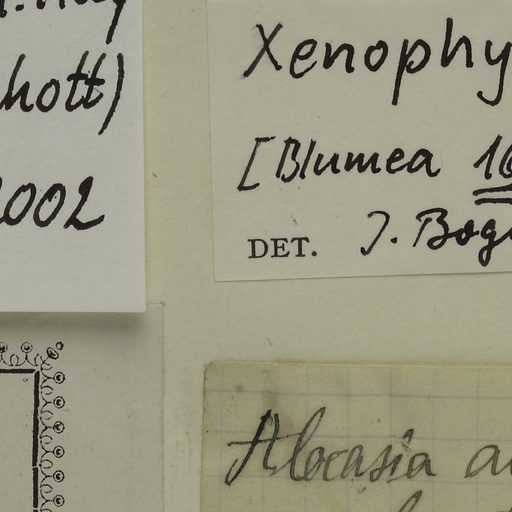 hott)
2002
Xenophy
[Blumea 16
DET. J. Bog
Alocasia